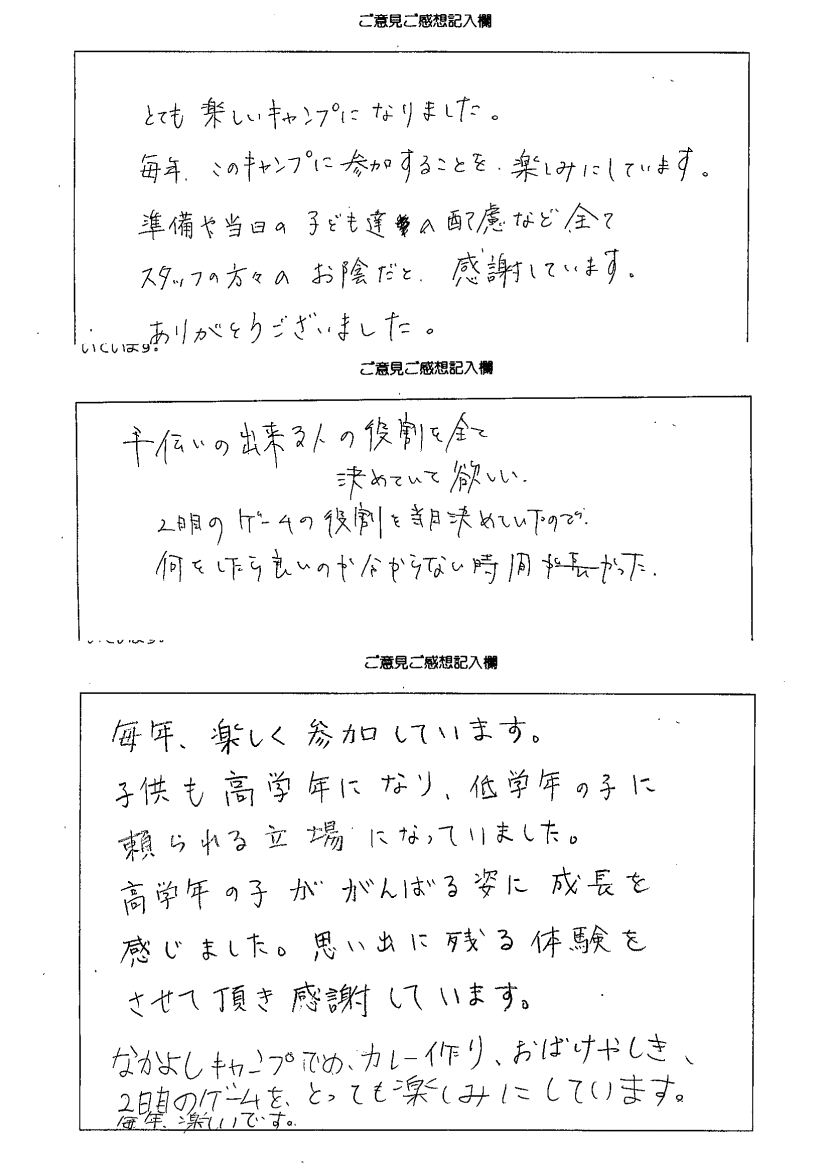 ご意見ご感想記入欄
とても楽しいキャンプになりました。
毎年、このキャンプに参加することを、楽しみにしています。
準備や当日の子ども達の配慮など全て
スタッフの方々のお陰だと、感謝しています。
ありがとうございました。
いています。
ご意見ご感想記入欄
手伝いの出来る人の役割を全て
決めていて欲しい.
2日目のゲームの役割を当日決めていたので.
何をしたら良いのか分からない時間が長かった.
ご意見ご感想記入欄
毎年、楽しく参加しています。
子供も高学年になり、低学年の子に
頼られる立場になっていました。
高学年の子ががんばる姿に成長を
感じました。思い出に残る体験を
させて頂き感謝しています。
なかよしキャンプでの、カレー作り、おばけやしき、
2日目のゲームを、とっても楽しみにしています。
毎年、楽しいです。